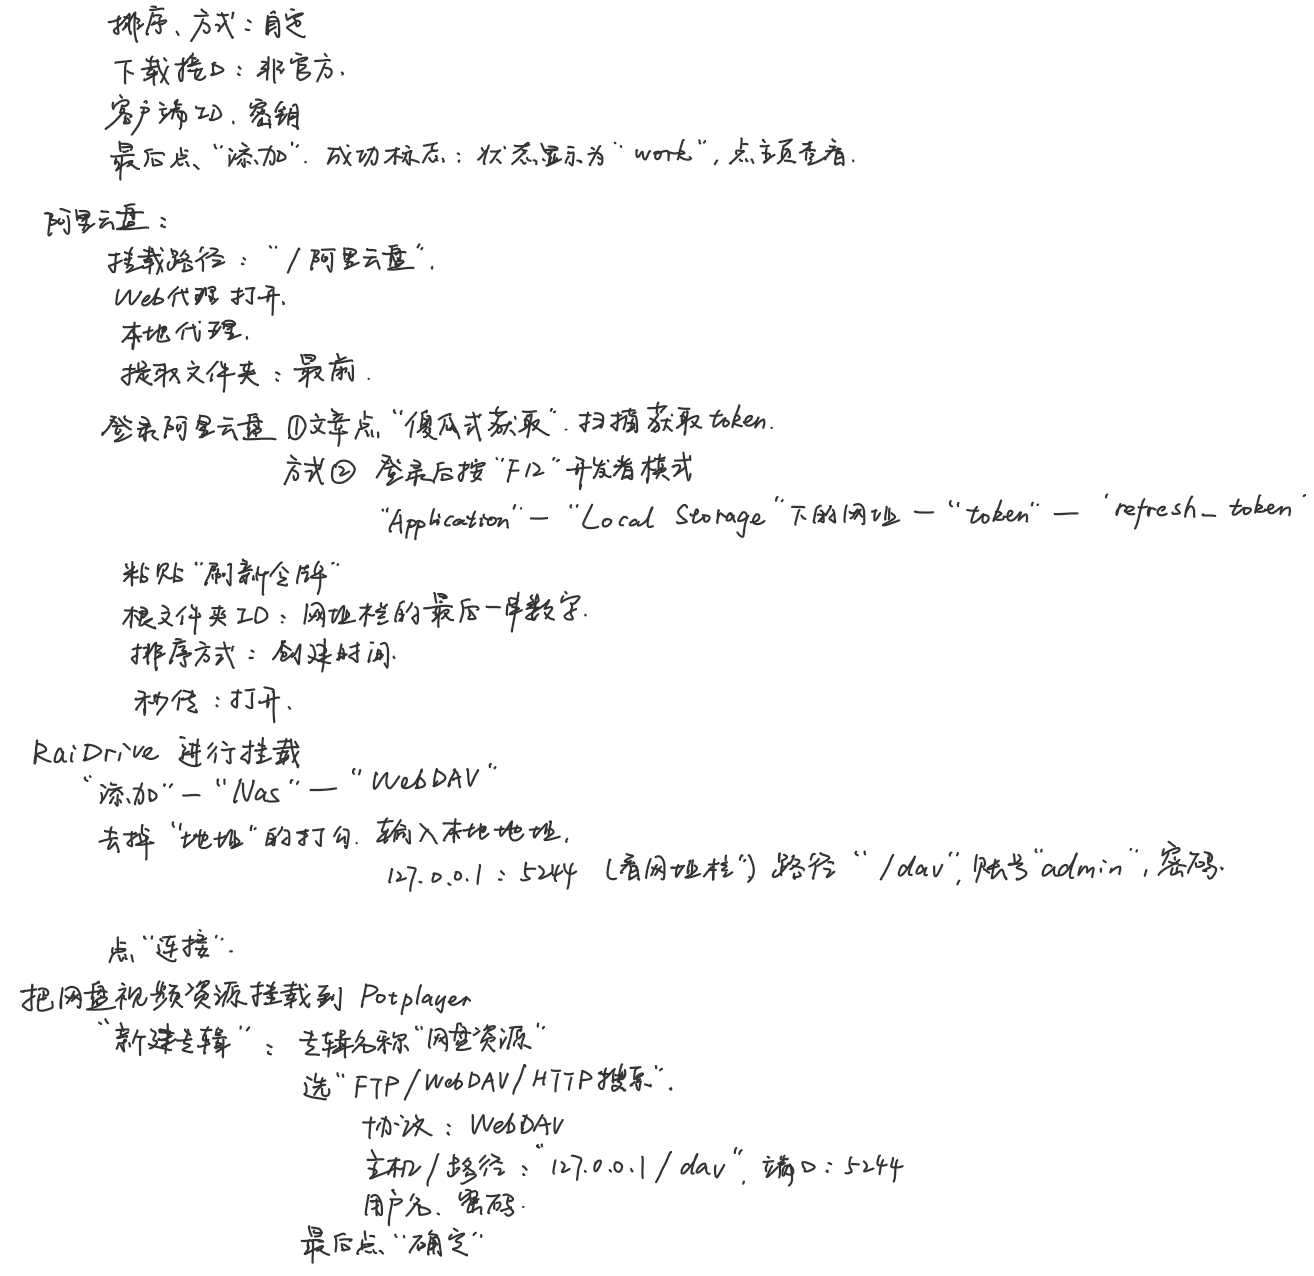 排序、方式：自定
下载接口：非官方.
客户端ID、密钥
最后点、“添加”. 成功标志：状态显示为“work”, 点主页查看.
阿里云盘：
挂载路径：“/阿里云盘”.
Web代理 打开.
本地代理.
提取文件夹：最前.
登录阿里云盘 ①文章点“傻瓜式获取”. 扫描获取token.
方式② 登录后按“F12”开发者模式
“Application”—“Local Storage”下的网址—“token”—‘refresh_token’
粘贴“刷新令牌”
根文件夹ID：网址栏的最后一串数字.
排序方式：创建时间.
秒传：打开.
RaiDrive 进行挂载
“添加”—“Nas”—“WebDAV”
去掉“地址”的打勾. 输入本地地址.
127.0.0.1：5244 (看网址栏”) 路径“/dav”, 账号“admin”, 密码.
点“连接”.
把网盘视频资源挂载到 Potplayer
“新建专辑”：专辑名称“网盘资源”
选“FTP/WebDAV/HTTP搜索”.
协议：WebDAV
主机/路径：“127.0.0.1/dav”, 端口：5244
用户名、密码.
最后点、“确定”